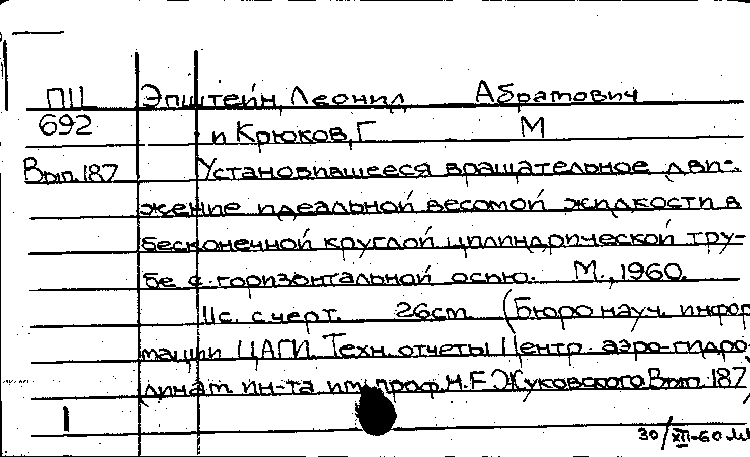 ПЦ Эпштейн, Леонид Абрамович
692 и Крюков, Г М
Вып. 187 Установившееся вращательное дви-
жение идеальной весомой жидкости в
бесконечной круглой цилиндрической тру-
бе с горизонтальной осью. М., 1960.
11с. с черт. 26см. (Бюро науч. инфор
мации ЦАГИ. Техн. отчеты Центр. аэро-гидро
динам. ин-та им. проф. Н.Е. Жуковского Вып. 187)
1
30/XII-60